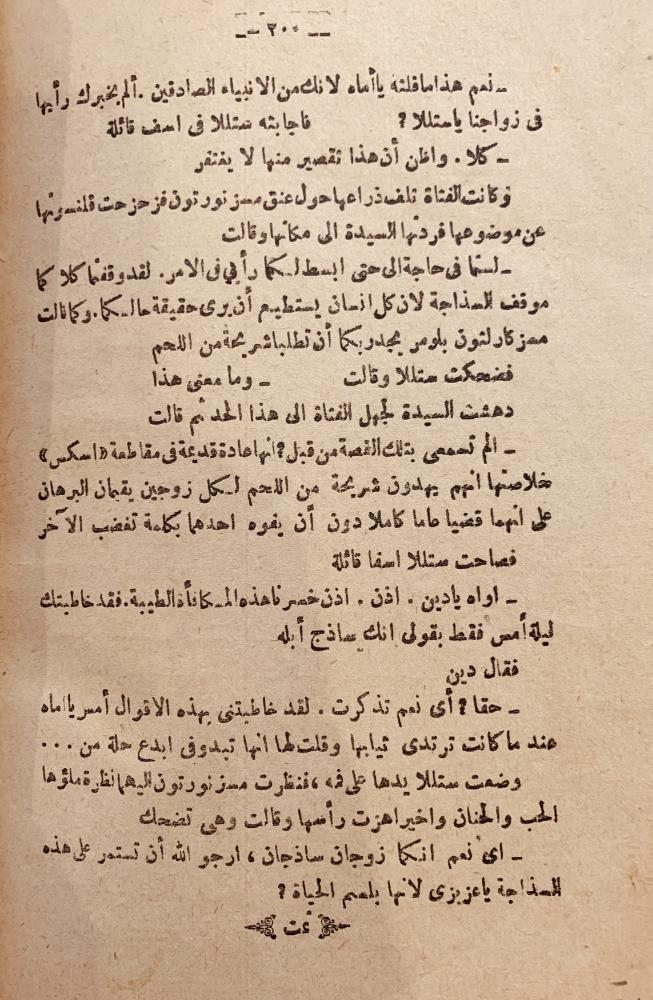 — ٢٠٠ —
ـ نعم هذا ما قلته يا أماه لانك من الانبياء الصادقين . ألم يخبرك رأيها
فى زواجنا يا ستللا ؟ فاجابته ستللا فى اسف قائلة
ـ كلا . واظن أن هذا تقصير منها لا يغتفر
وكانت الفتاة تلف ذراعها حول عنق مسز نورتون فزحزحت قلنسوتها
عن موضوعها فردتها السيدة الى مكانها وقالت
ـ لستما فى حاجة الى حتى ابسط لكما رأيي فى الامر . لقد وقفتما كلا كما
موقف السذاجة لان كل انسان يستطيع أن يرى حقيقة حالكما . وكما قالت
مسز كارلتون بلومر يجدر بكما أن تطلبا شريحة من اللحم
فضحكت ستللا وقالت ـ وما معنى هذا
دهشت السيدة لجهل الفتاة الى هذا الحد ثم قالت
ـ الم تسمعى بتلك القصة من قبل ؟ انها عادة قديمة فى مقاطعة « اسكس »
خلاصتها انهم يهدون شريحة من اللحم لكل زوجين يقيمان البرهان
على انهما قضيا عاما كاملا دون أن يفوه احدهما بكلمة تغضب الآخر
فصاحت ستللا اسفا قائلة
ـ اواه يادين . اذن . اذن خسرنا هذه المكافأة الطيبة . فقد خاطبتك
ليلة أمس فقط بقولى انك ساذج أبله
فقال دين
ـ حقا ؟ أى نعم تذكرت . لقد خاطبتنى بهذه الاقوال أمس يا اماه
عند ما كانت ترتدى ثيابها وقلت لها انها تبدو فى ابدع حلة من ...
وضعت ستللا يدها على فمه ، فنظرت مسز نورتون اليهما نظرة ملؤها
الحب والحنان واخيرا هزت رأسها وقالت وهى تضحك
ـ اى نعم انكما زوجان ساذجان ، ارجو الله أن تستمر على هذه
السذاجة ياعزيزى لانها بلسم الحياة ؟
تمت